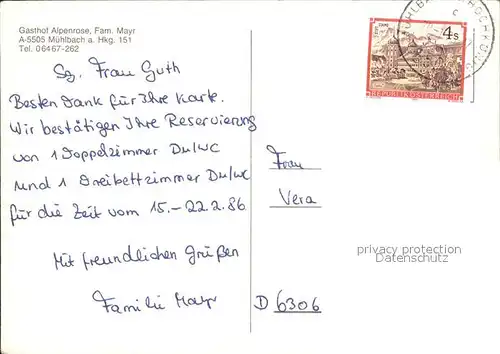 Gasthof Alpenrose, Fam. Mayr
A-5505 Mühlbach a. Hkg. 151
Tel. 06467-262
Sg. Frau Guth
Besten Dank für Ihre Karte.
Wir bestätigen Ihre Reservierung
von 1 Doppelzimmer Du/WC
und 1 Dreibettzimmer Du/WC
für die Zeit vom 15.-22.2.86
Mit freundlichen Grüßen
Familie Mayr
4 S
REPUBLIK ÖSTERREICH
Frau
Vera
D 6306
privacy protection
Datenschutz